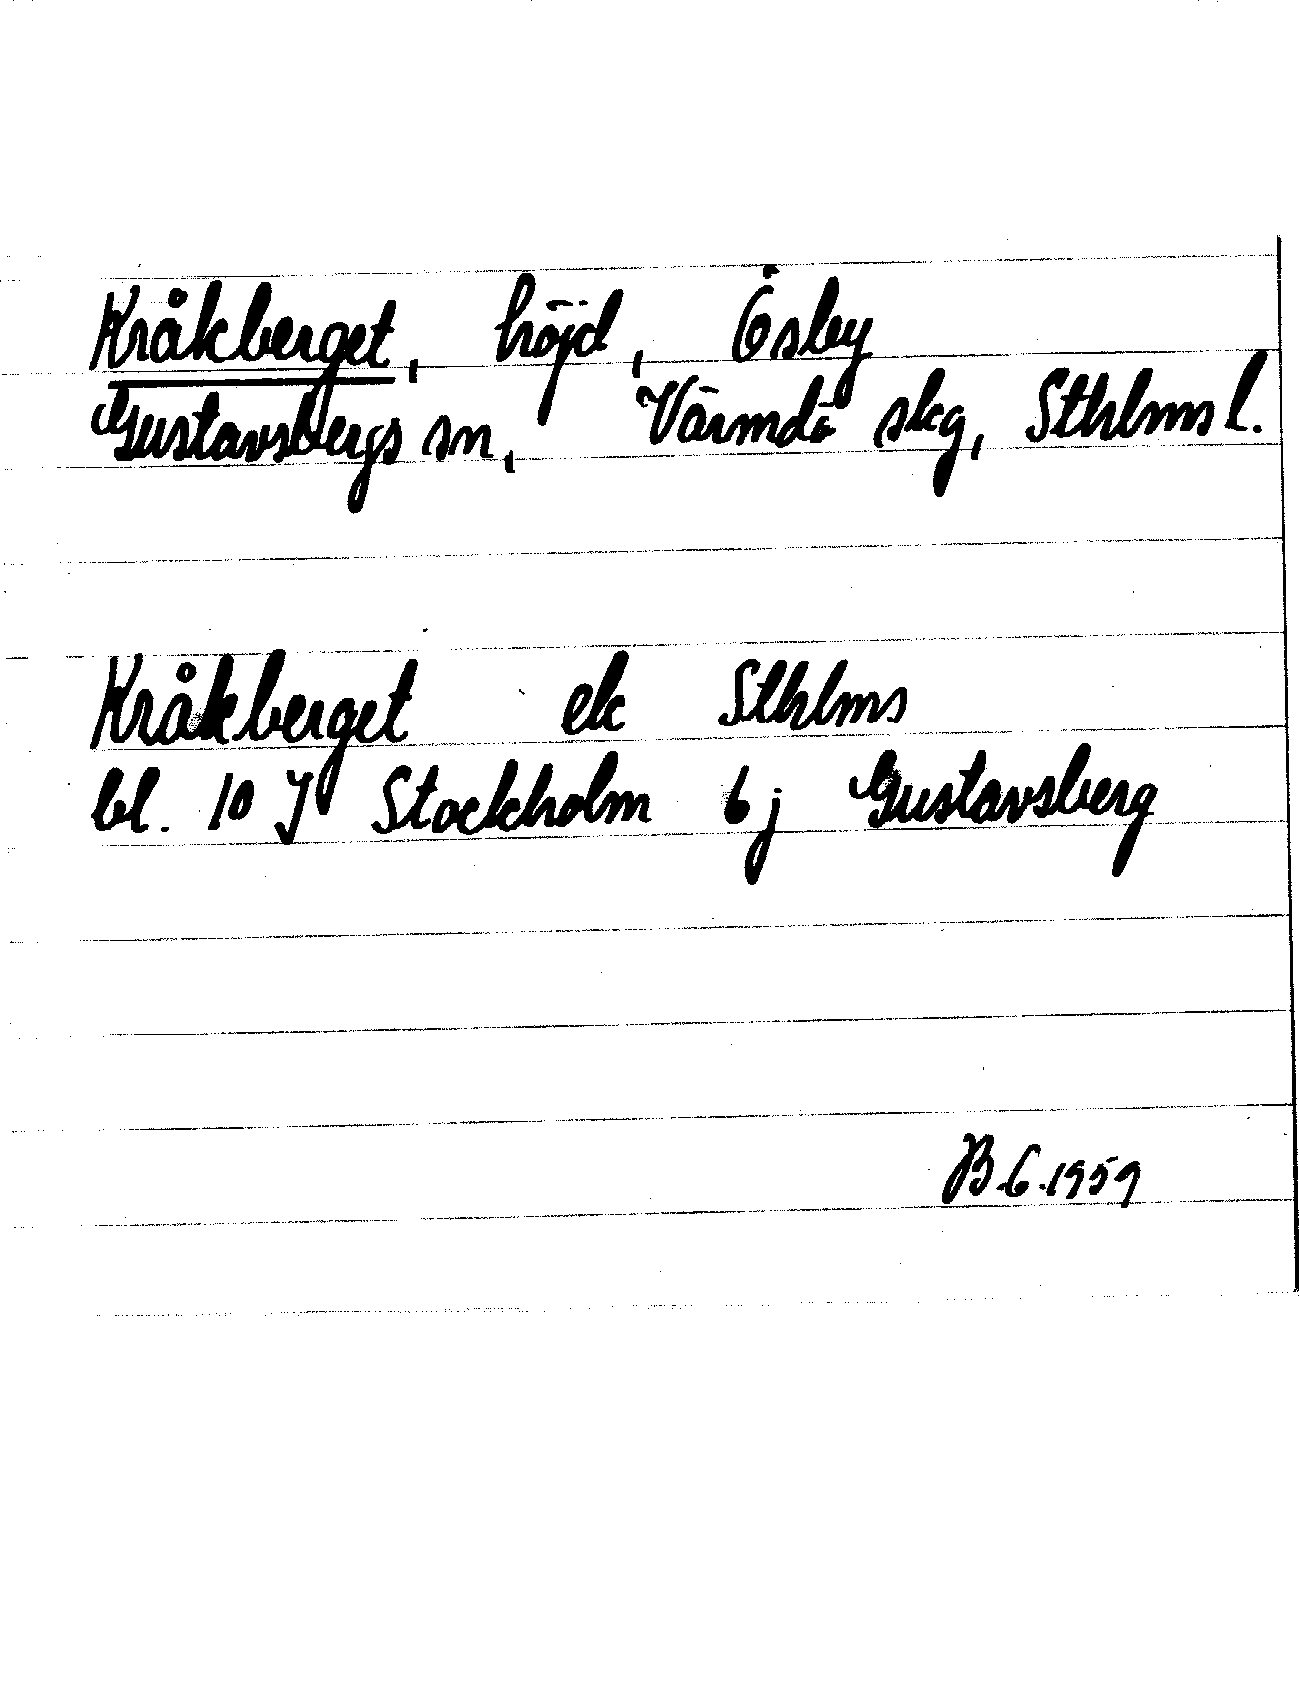 Kråkberget, höjd, Ösby
Gustavsbergs sn, Värmdö skg, Sthlms l.
Kråkberget ek Sthlms
bl. 10 J Stockholm 6 j Gustavsberg
B.G. 1959